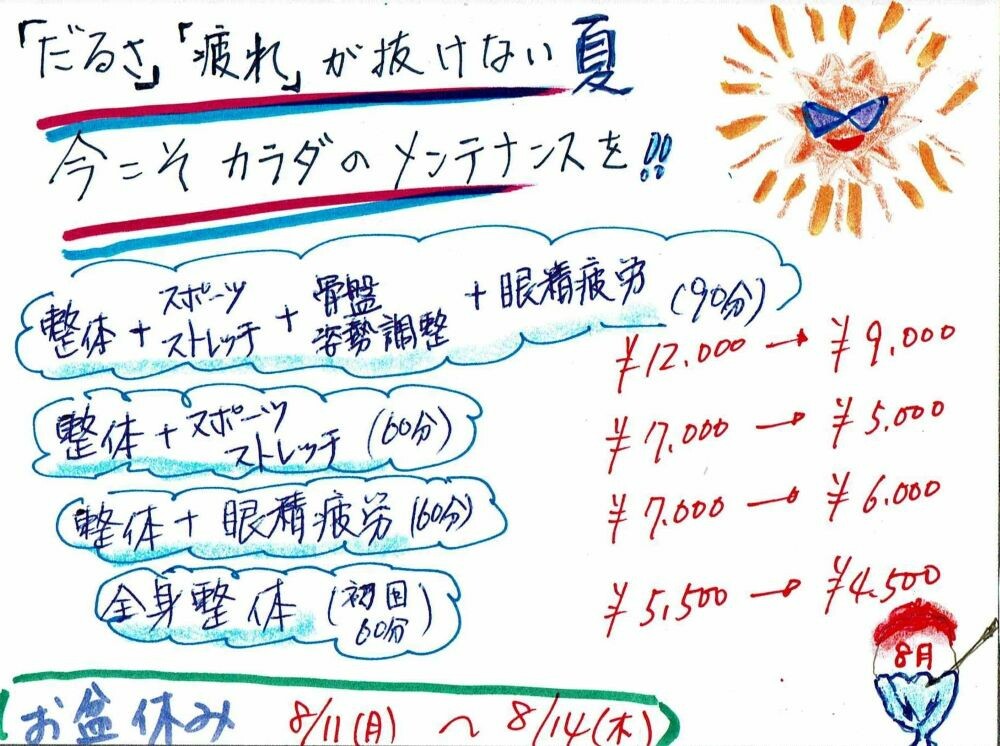 「だるさ」「疲れ」が抜けない夏
今こそカラダのメンテナンスを!!
整体+スポーツストレッチ+骨盤姿勢調整+眼精疲労(90分)
¥12.000→¥9.000
整体+スポーツストレッチ(60分)
¥7.000→¥5.000
整体+眼精疲労(60分)
¥7.000→¥6.000
全身整体(初回60分)
¥5,500→¥4.500
8月
お盆休み 8/11(月)〜8/14(木)